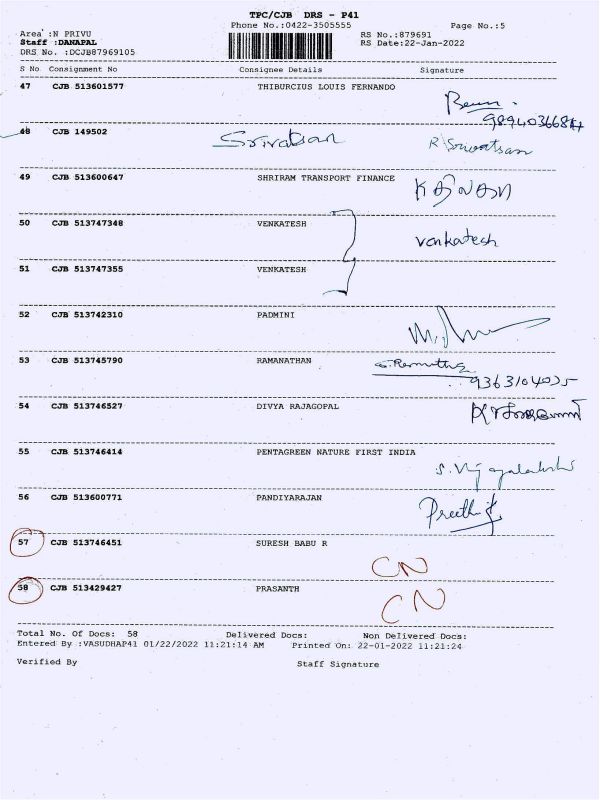 TPC/CJB DRS - P41
Phone No.:0422-3505555 Page No.:5
Area :N PRIVU RS No.:879691
Staff :DANAPAL RS Date:22-Jan-2022
DRS No. :DCJB87969105
S No Consignment No Consignee Details Signature
47 CJB 513601577 THIBURCIUS LOUIS FERNANDO
48 CJB 149502 Srivatsan R Srivatsan
49 CJB 513600647 SHRIRAM TRANSPORT FINANCE
50 CJB 513747348 VENKATESH venkatesh
51 CJB 513747355 VENKATESH
52 CJB 513742310 PADMINI
53 CJB 513745790 RAMANATHAN
54 CJB 513746527 DIVYA RAJAGOPAL
55 CJB 513746414 PENTAGREEN NATURE FIRST INDIA
56 CJB 513600771 PANDIYARAJAN
57 CJB 513746451 SURESH BABU R CN
58 CJB 513429427 PRASANTH CN
Total No. Of Docs: 58 Delivered Docs: Non Delivered Docs:
Entered By :VASUDHAP41 01/22/2022 11:21:14 AM Printed On: 22-01-2022 11:21:24
Verified By Staff Signature